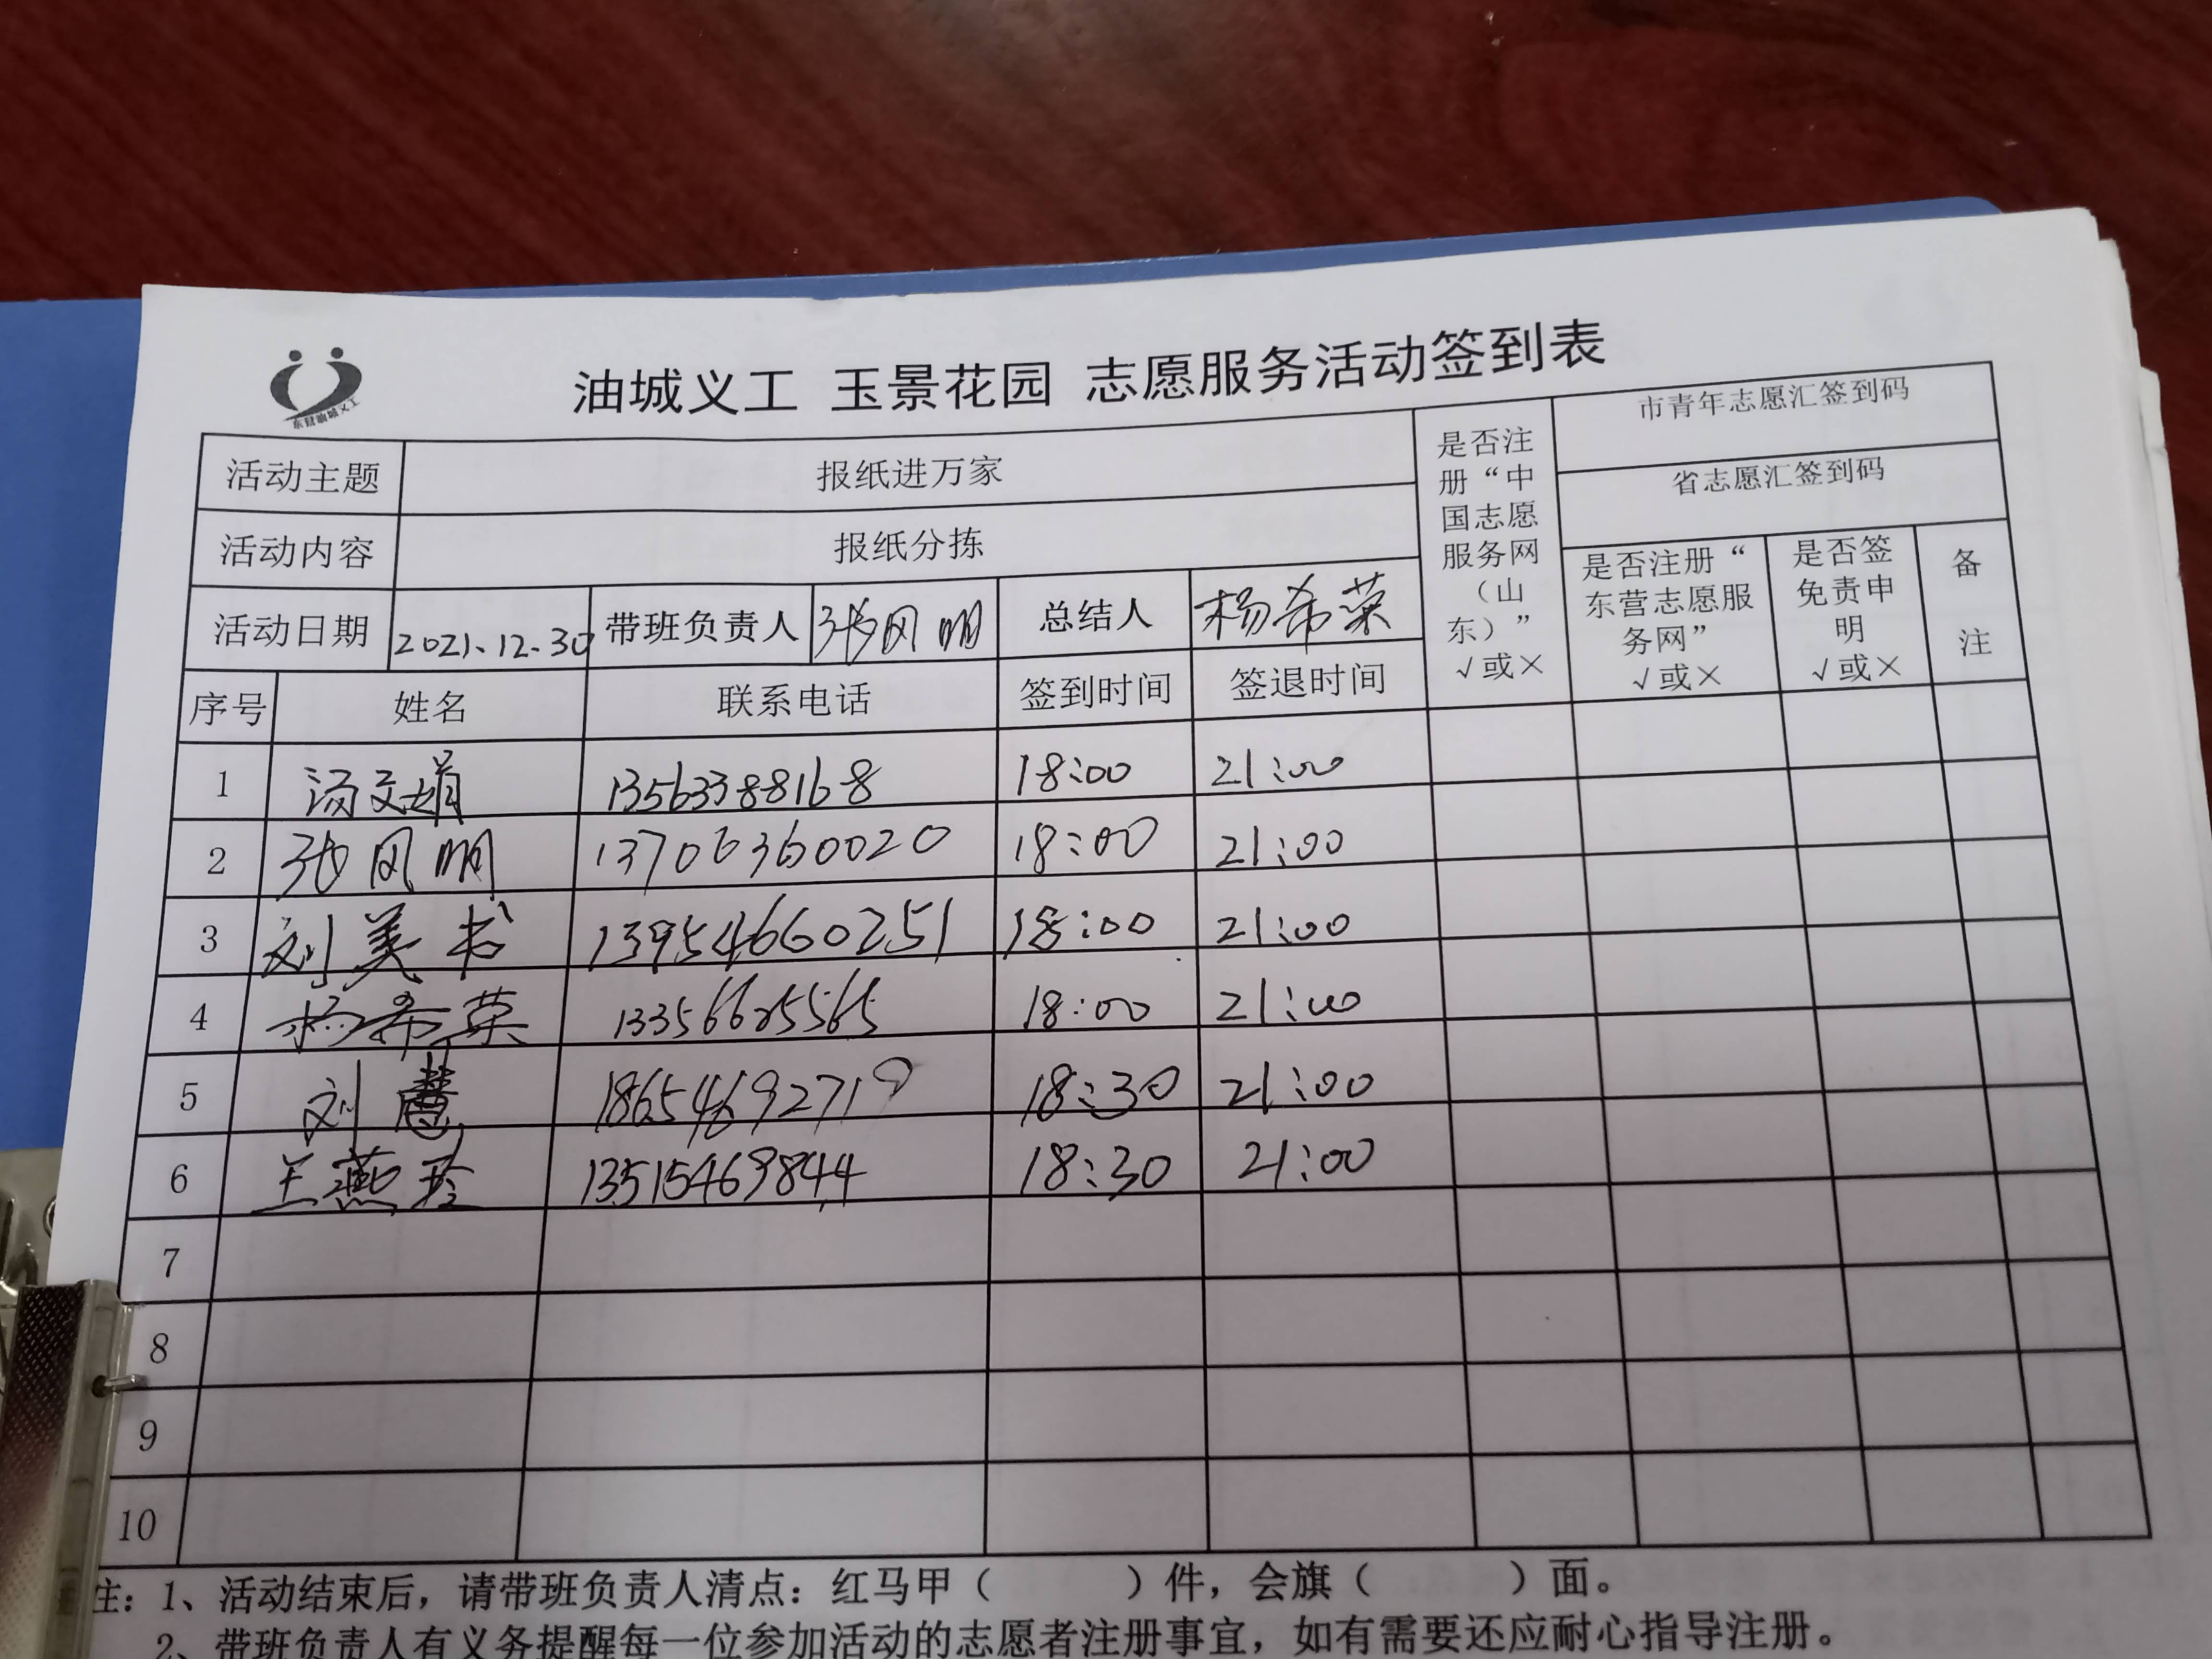 东营油城义工
油城义工 玉景花园 志愿服务活动签到表
活动主题 报纸进万家
活动内容 报纸分拣
活动日期 2021.12.30 带班负责人 张风明 总结人 杨希荣
是否注册“中国志愿服务网（山东）” √或×
市青年志愿汇签到码
省志愿汇签到码
是否注册“东营志愿服务网” √或×
是否签免责申明 √或×
备注
序号 姓名 联系电话 签到时间 签退时间
1 汤文娟 13563388168 18:00 21:00
2 张风明 13706360020 18:00 21:00
3 刘美书 13954660251 18:00 21:00
4 杨希荣 18:00 21:00
5 刘慧 18654692719 18:30 21:00
6 王燕玲 13515469844 18:30 21:00
7
8
9
10
注：1、活动结束后，请带班负责人清点：红马甲（ ）件，会旗（ ）面。
2、带班负责人有义务提醒每一位参加活动的志愿者注册事宜，如有需要还应耐心指导注册。